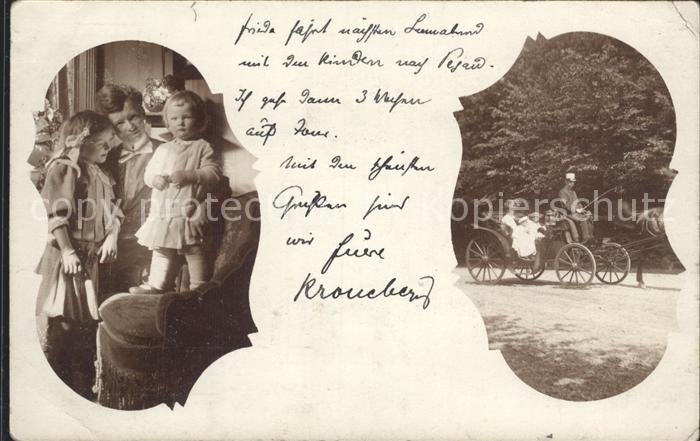 Frieda fährt nächsten Sonnabend
mit den Kindern nach Pegau.
Ich gehe dann 3 Wochen
auf Tour.
Mit den schönsten
Grüßen sind
wir Eure
Kronebergs
copy protected Kopierschutz